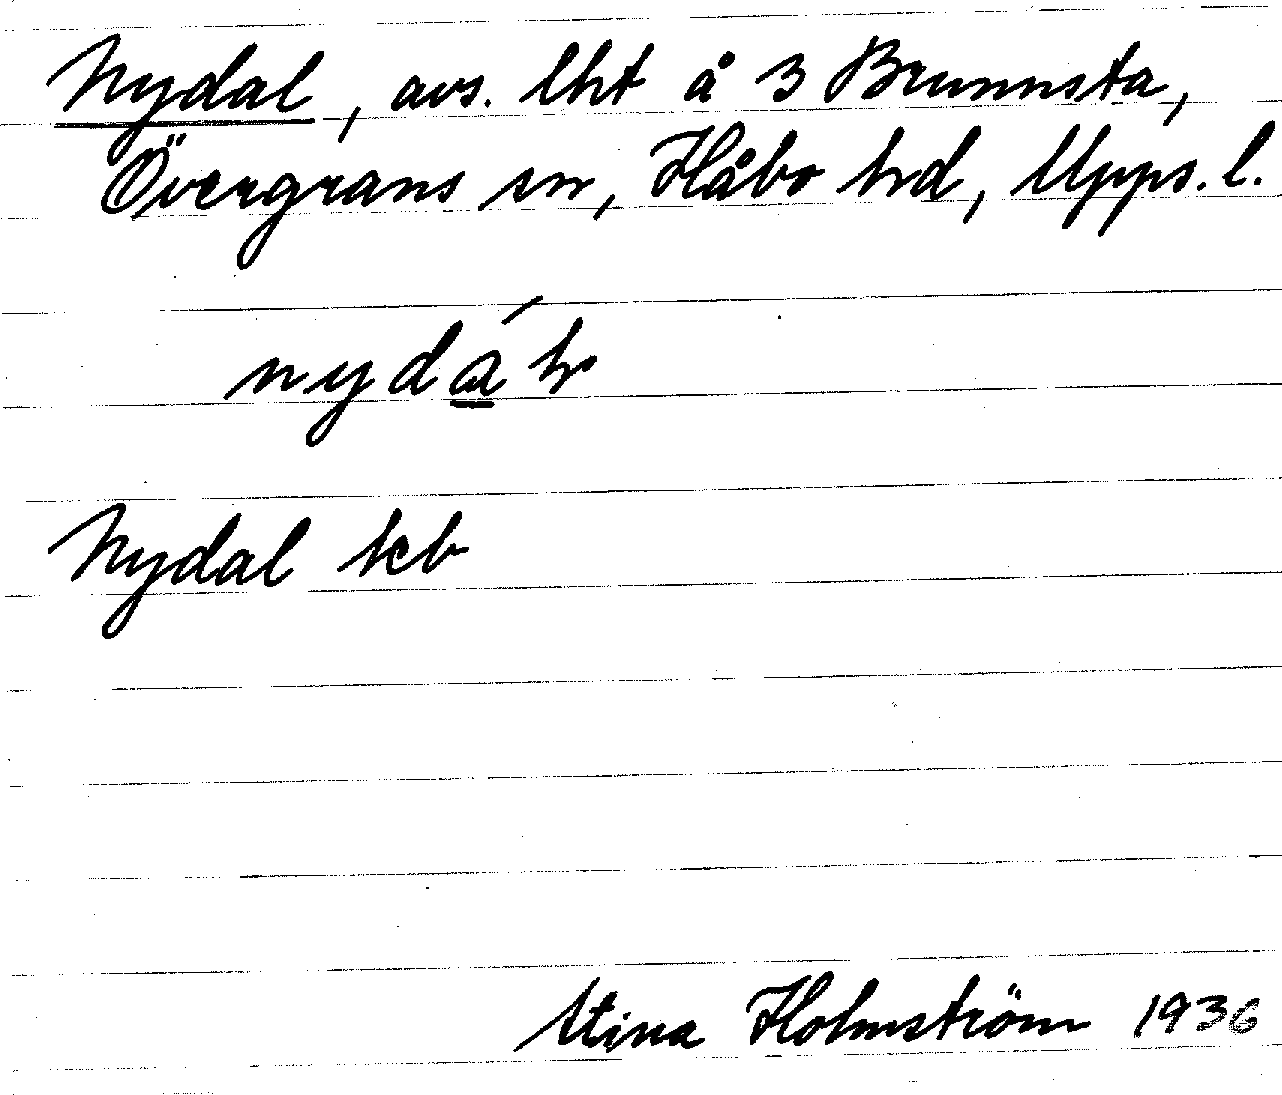 Nydal, avs. lht å 3 Brunnsta,
Övergrans sn, Håbo hd, Upps. l.
Nydal kcb
Stina Holmström 1936